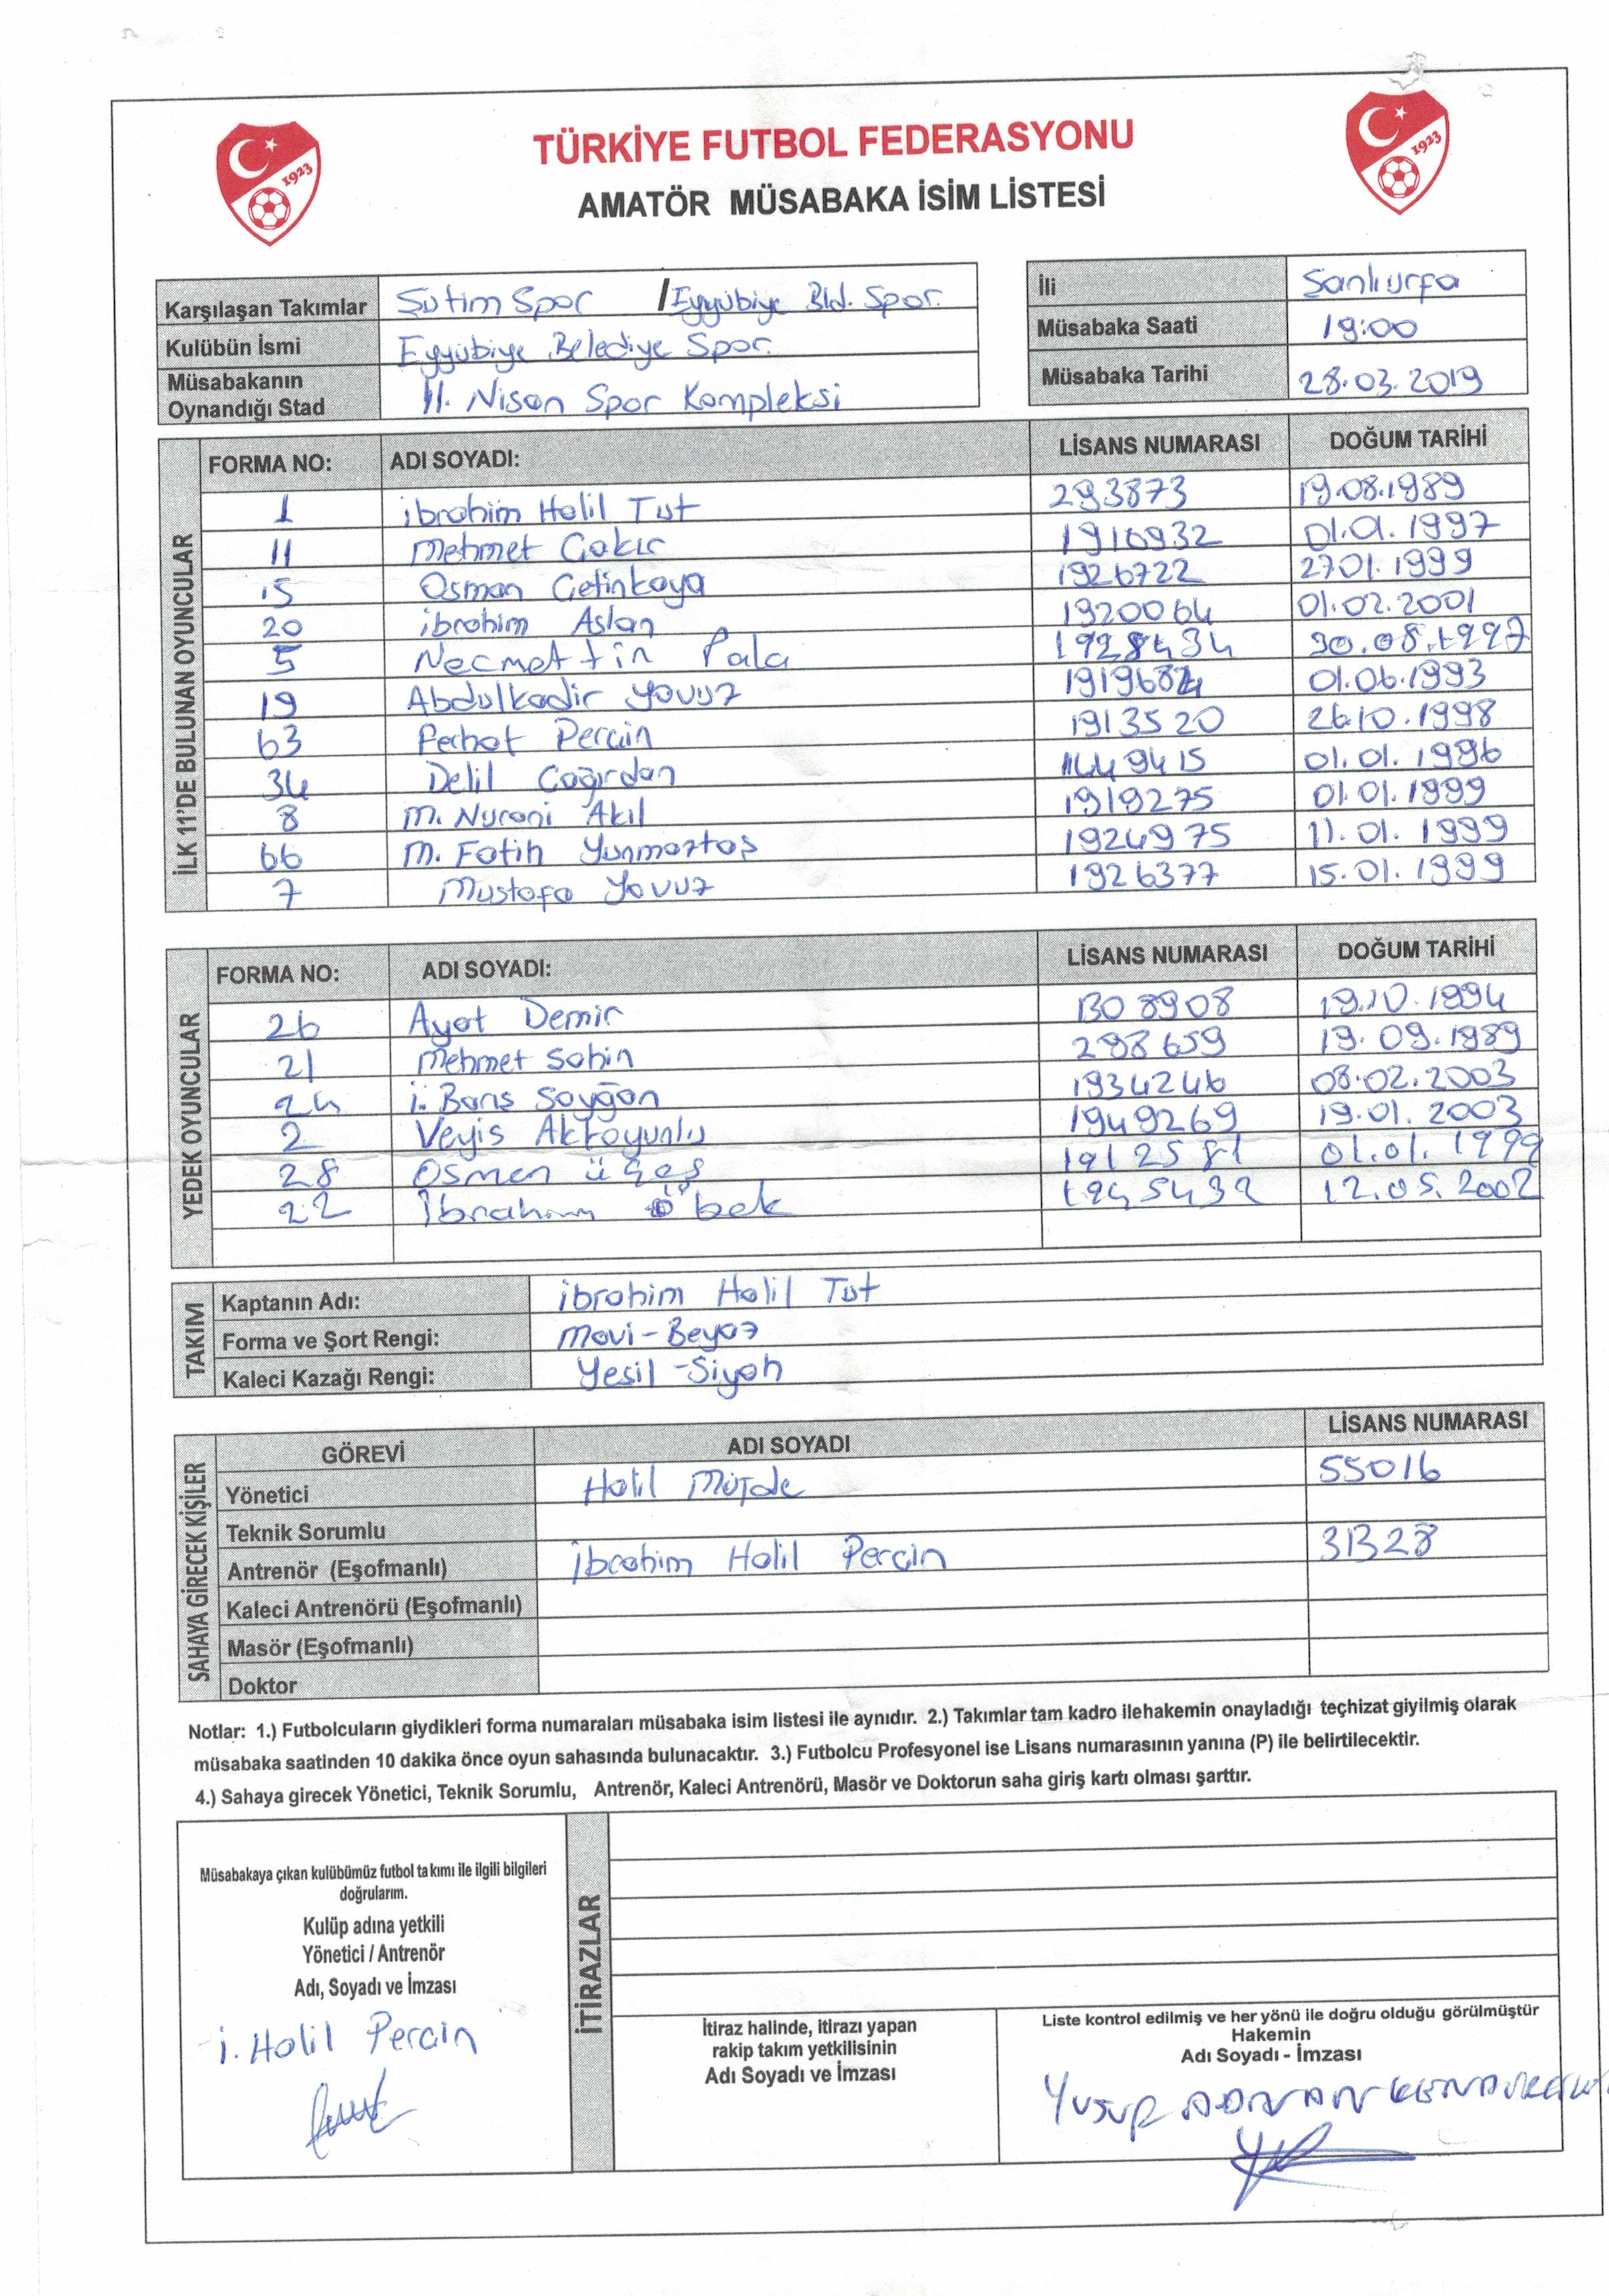 TÜRKİYE FUTBOL FEDERASYONU
AMATÖR MÜSABAKA İSİM LİSTESİ
1923
1923
Karşılaşan Takımlar Sutim Spor / Eyyübiye Bld. Spor.
Kulübün İsmi Eyyübiye Belediye Spor.
Müsabakanın Oynandığı Stad 11. Nisan Spor Kompleksi
İli Şanlıurfa
Müsabaka Saati 19:00
Müsabaka Tarihi 28.03.2019
İLK 11'DE BULUNAN OYUNCULAR
FORMA NO: ADI SOYADI: LİSANS NUMARASI DOĞUM TARİHİ
1 ibrahim Halil Tut 293873 19.08.1989
11 Mehmet Cakır 1910932 01.01.1997
15 Osman Cetinkaya 1926722 27.01.1999
20 ibrahim Aslan 1920064 01.02.2001
5 Necmettin Pala 1928434 30.08.1997
19 Abdulkadir Yavuz 01.06.1993
63 Ferhat Percin 1913520 26.10.1998
34 Delil Cağırdan 01.01.1996
8 M. Nurani Akıl 1919275 01.01.1999
66 M. Fatih 1924975 11.01.1999
7 Mustafa Yavuz 1926377 15.01.1999
YEDEK OYUNCULAR
FORMA NO: ADI SOYADI: LİSANS NUMARASI DOĞUM TARİHİ
26 Ayat Demir 1308908 19.10.1994
21 Mehmet Sahin 298659 19.09.1989
24 i. Barış Saygan 1934246 08.02.2003
2 Veyis Aktoyunlu 1949269 19.01.2003
28 Osman üçeş 1912581 01.01.1999
22 İbrahim Öbek 1945432 12.05.2002
TAKIM
Kaptanın Adı: ibrahim Halil Tut
Forma ve Şort Rengi: Mavi-Beyaz
Kaleci Kazağı Rengi: Yesil-Siyah
SAHAYA GİRECEK KİŞİLER
GÖREVİ ADI SOYADI LİSANS NUMARASI
Yönetici Halil Müjde 55016
Teknik Sorumlu
Antrenör (Eşofmanlı) ibrahim Halil Percin 31328
Kaleci Antrenörü (Eşofmanlı)
Masör (Eşofmanlı)
Doktor
Notlar: 1.) Futbolcuların giydikleri forma numaraları müsabaka isim listesi ile aynıdır. 2.) Takımlar tam kadro ilehakemin onayladığı teçhizat giyilmiş olarak
müsabaka saatinden 10 dakika önce oyun sahasında bulunacaktır. 3.) Futbolcu Profesyonel ise Lisans numarasının yanına (P) ile belirtilecektir.
4.) Sahaya girecek Yönetici, Teknik Sorumlu, Antrenör, Kaleci Antrenörü, Masör ve Doktorun saha giriş kartı olması şarttır.
Müsabakaya çıkan kulübümüz futbol takımı ile ilgili bilgileri
doğrularım.
Kulüp adına yetkili
Yönetici / Antrenör
Adı, Soyadı ve İmzası
i. Halil Percin
İTİRAZLAR
İtiraz halinde, itirazı yapan
rakip takım yetkilisinin
Adı Soyadı ve İmzası
Liste kontrol edilmiş ve her yönü ile doğru olduğu görülmüştür
Hakemin
Adı Soyadı - İmzası
YUSUF ADNAN